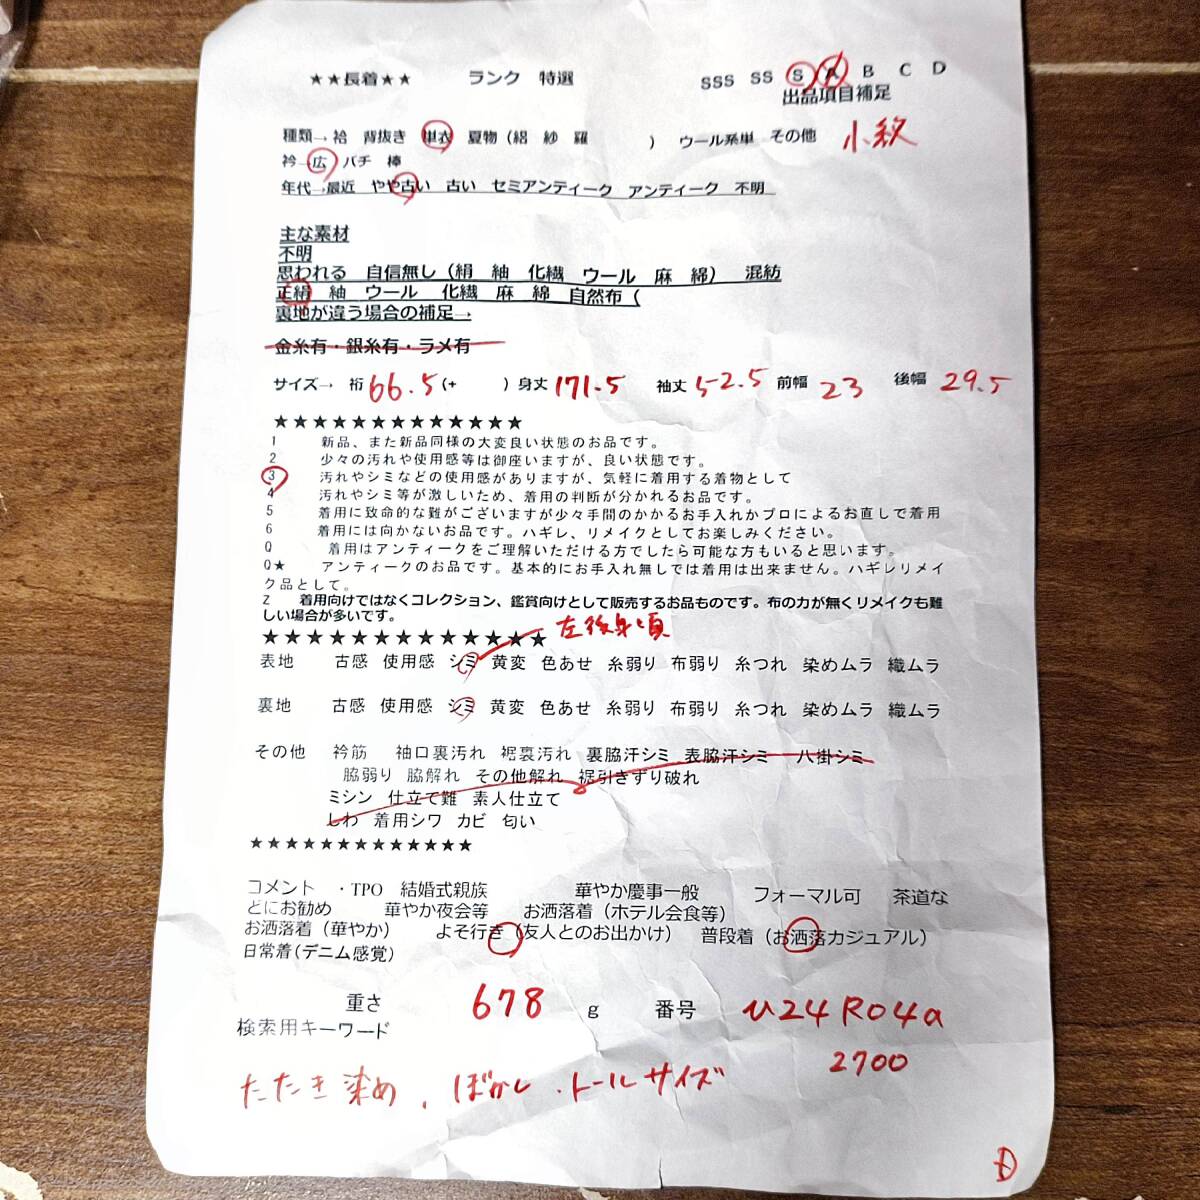 ★★長着★★ ランク 特選 SSS SS S A B C D
出品項目補足
種類→ 袷 背抜き 単衣 夏物（絽 紗 羅 ） ウール系単 その他 小紋
衿→広 バチ 棒
年代→最近 やや古い 古い セミアンティーク アンティーク 不明
主な素材
不明
思われる 自信無し（絹 紬 化繊 ウール 麻 綿） 混紡
正絹 紬 ウール 化繊 麻 綿 自然布（
裏地が違う場合の補足→
金糸有・銀糸有・ラメ有
サイズ→ 裄 66.5（+ ）身丈 171.5 袖丈 52.5 前幅 23 後幅 29.5
★★★★★★★★★★★★★
1 新品、また新品同様の大変良い状態のお品です。
2 少々の汚れや使用感等は御座いますが、良い状態です。
3 汚れやシミなどの使用感がありますが、気軽に着用する着物として
4 汚れやシミ等が激しいため、着用の判断が分かれるお品です。
5 着用に致命的な難がございますが少々手間のかかるお手入れかプロによるお直しで着用
6 着用には向かないお品です。ハギレ、リメイクとしてお楽しみください。
Q 着用はアンティークをご理解いただける方でしたら可能な方もいると思います。
Q★ アンティークのお品です。基本的にお手入れ無しでは着用は出来ません。ハギレリメイ
ク品として。
Z 着用向けではなくコレクション、鑑賞向けとして販売するお品ものです。布の力が無くリメイクも難
しい場合が多いです。
★★★★★★★★★★★★★ 左後身頃
表地 古感 使用感 シミ 黄変 色あせ 糸弱り 布弱り 糸つれ 染めムラ 織ムラ
裏地 古感 使用感 シミ 黄変 色あせ 糸弱り 布弱り 糸つれ 染めムラ 織ムラ
その他 衿筋 袖口裏汚れ 裾裏汚れ 裏脇汗シミ 表脇汗シミ 八掛シミ
脇弱り 脇解れ その他解れ 裾引きずり破れ
ミシン 仕立て難 素人仕立て
しわ 着用シワ カビ 匂い
★★★★★★★★★★★★★
コメント ・TPO 結婚式親族 華やか慶事一般 フォーマル可 茶道な
どにお勧め 華やか夜会等 お洒落着（ホテル会食等）
お洒落着（華やか） よそ行き（友人とのお出かけ） 普段着（お洒落カジュアル）
日常着（デニム感覚）
重さ 678 g 番号 U24R04a
検索用キーワード 2700
たたき染め、ぼかし・トールサイズ